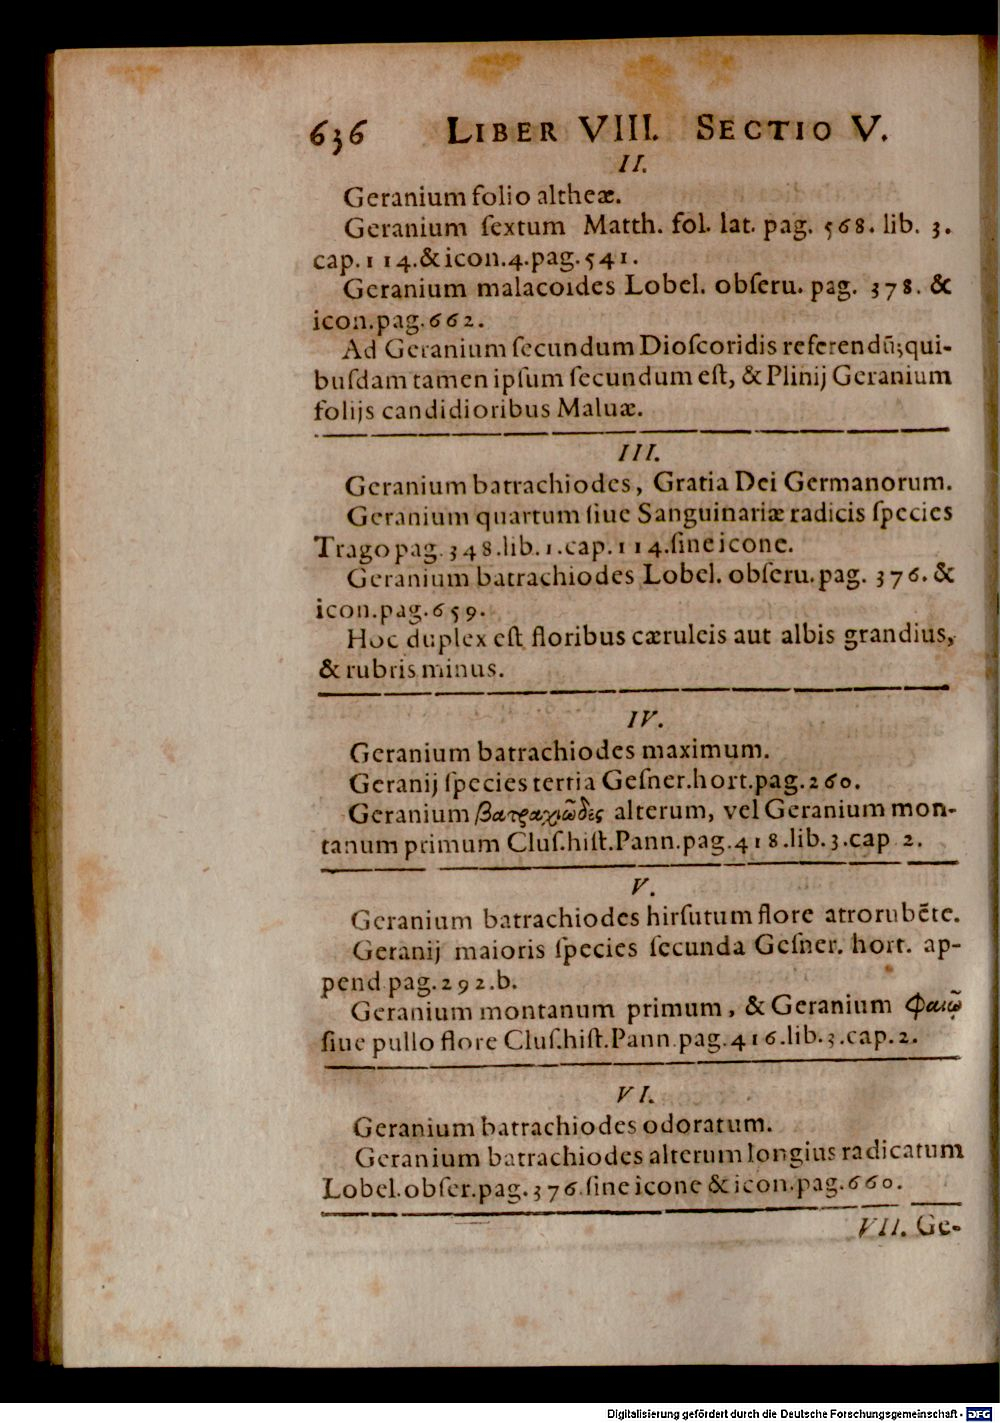 636 LIBER VIII. SECTIO V.
II.
Geranium folio altheæ.
Geranium ſextum Matth. fol. lat. pag. 568. lib. 3.
cap. 114. & icon. 4. pag. 541.
Geranium malacoides Lobel. obſeru. pag. 378. &
icon. pag. 662.
Ad Geranium ſecundum Dioſcoridis referendū; qui-
buſdam tamen ipſum ſecundum eſt, & Plinij Geranium
folijs candidioribus Maluæ.
III.
Geranium batrachiodes, Gratia Dei Germanorum.
Geranium quartum ſiue Sanguinariæ radicis ſpecies
Trago pag. 348. lib. 1. cap. 114. ſine icone.
Geranium batrachiodes Lobel. obſeru. pag. 376. &
icon. pag. 659.
Hoc duplex eſt floribus cæruleis aut albis grandius,
& rubris minus.
IV.
Geranium batrachiodes maximum.
Geranij ſpecies tertia Geſner. hort. pag. 260.
Geranium βατραχιῶδες alterum, vel Geranium mon-
tanum primum Cluſ. hiſt. Pann. pag. 418. lib. 3. cap 2.
V.
Geranium batrachiodes hirſutum flore atrorubēte.
Geranij maioris ſpecies ſecunda Geſner. hort. ap-
pend pag. 292. b.
Geranium montanum primum, & Geranium φαιῷ
ſiue pullo flore Cluſ. hiſt. Pann. pag. 416. lib. 3. cap. 2.
VI.
Geranium batrachiodes odoratum.
Geranium batrachiodes alterum longius radicatum
Lobel. obſer. pag. 376. ſine icone & icon. pag. 660.
VII. Ge-
Digitalisierung gefördert durch die Deutsche Forschungsgemeinschaft - DFG